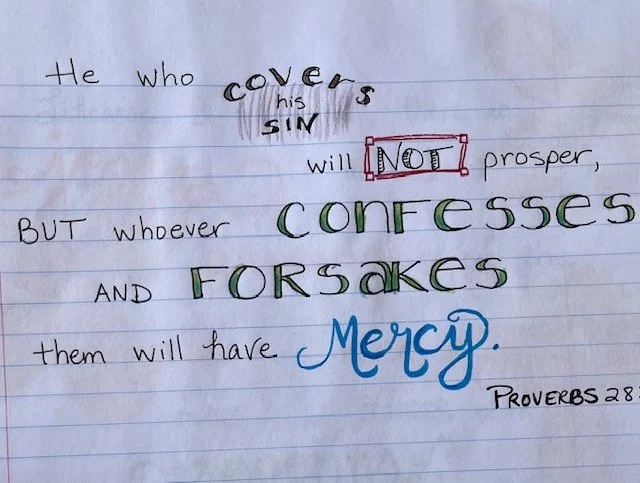 He who covers
his
SIN
will NOT prosper,
BUT whoever CONFESSES
AND FORSAKES
them will have Mercy.
PROVERBS 28: